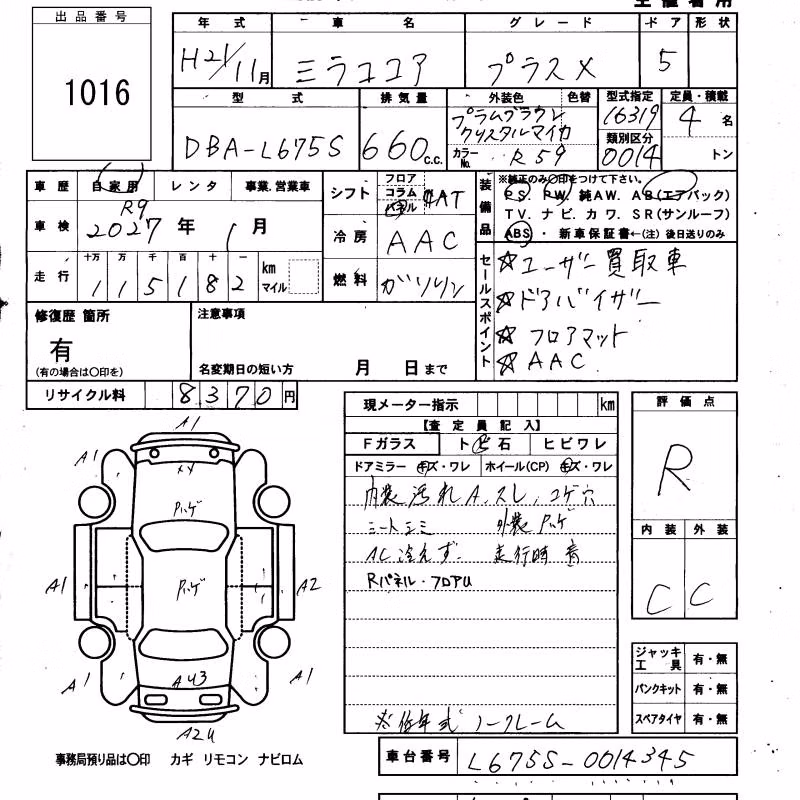 出品番号
1016
年式 車名 グレード ドア 形状
H21/11月 ミラココア プラスX 5
型式 排気量 外装色 色替 型式指定 定員・積載
DBA-L675S 660c.c. プラムブラウンクリスタルマイカ 16319 4名
カラーNo. R59 類別区分 0014 トン
車歴 自家用 レンタ 事業.営業車
車検 R9 2027年 1月
走行 十万 万 千 百 十 一
115182 km マイル
シフト フロア コラム パネル 4AT
冷房 AAC
燃料 ガソリン
装備品 ※純正のみ〇印をつけて下さい。
PS. PW. 純AW. AB(エアバック)
TV. ナビ. カワ. SR(サンルーフ)
ABS・新車保証書←(注)後日送りのみ
セールスポイント
☆ユーザー買取車
☆ドアバイザー
☆フロアマット
☆AAC
修復歴 箇所
有
(有の場合は〇印を)
注意事項
名変期日の短い方 月 日まで
リサイクル料 8370円
現メーター指示 km
【査定員記入】
Fガラス ト ビ 石 ヒビワレ
ドアミラー キズ・ワレ ホイール(CP) キズ・ワレ
内装汚れA.スレ.コゲ穴
シートシミ 外装ハゲ
AC冷えず. 走行時 音
Rパネル・フロアU
※低年式 ノークレーム
評価点
R
内装 外装
C C
ジャッキ工具 有・無
パンクキット 有・無
スペアタイヤ 有・無
A1
A1
A1
ハゲ
A1
ハゲ
A2
A1
AU3
A1
A2U
事務局預り品は〇印 カギ リモコン ナビロム
車台番号 L675S-0014345